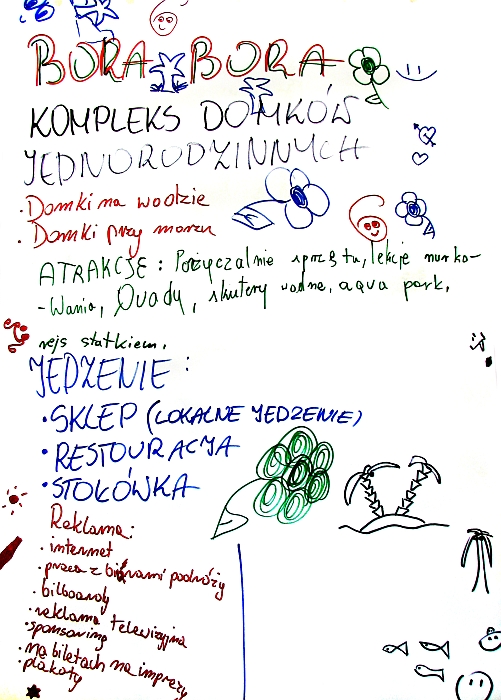 BORA BORA
KOMPLEKS DOMKÓW
JEDNORODZINNYCH
· Domki na wodzie
· Domki przy morzu
ATRAKCJE : Pożyczalnie sprzętu, lekcje nurko-
- Wania, Quady, skutery wodne, aqua park,
rejs statkiem.
JEDZENIE :
· SKLEP (LOKALNE JEDZENIE)
· RESTOURACJA
· STOŁÓWKA
Reklama:
· internet
· praca z biurami podróży
· bilboardy
· reklama telewizyjna
· sponsoring
· na biletach na imprezy
· plakaty